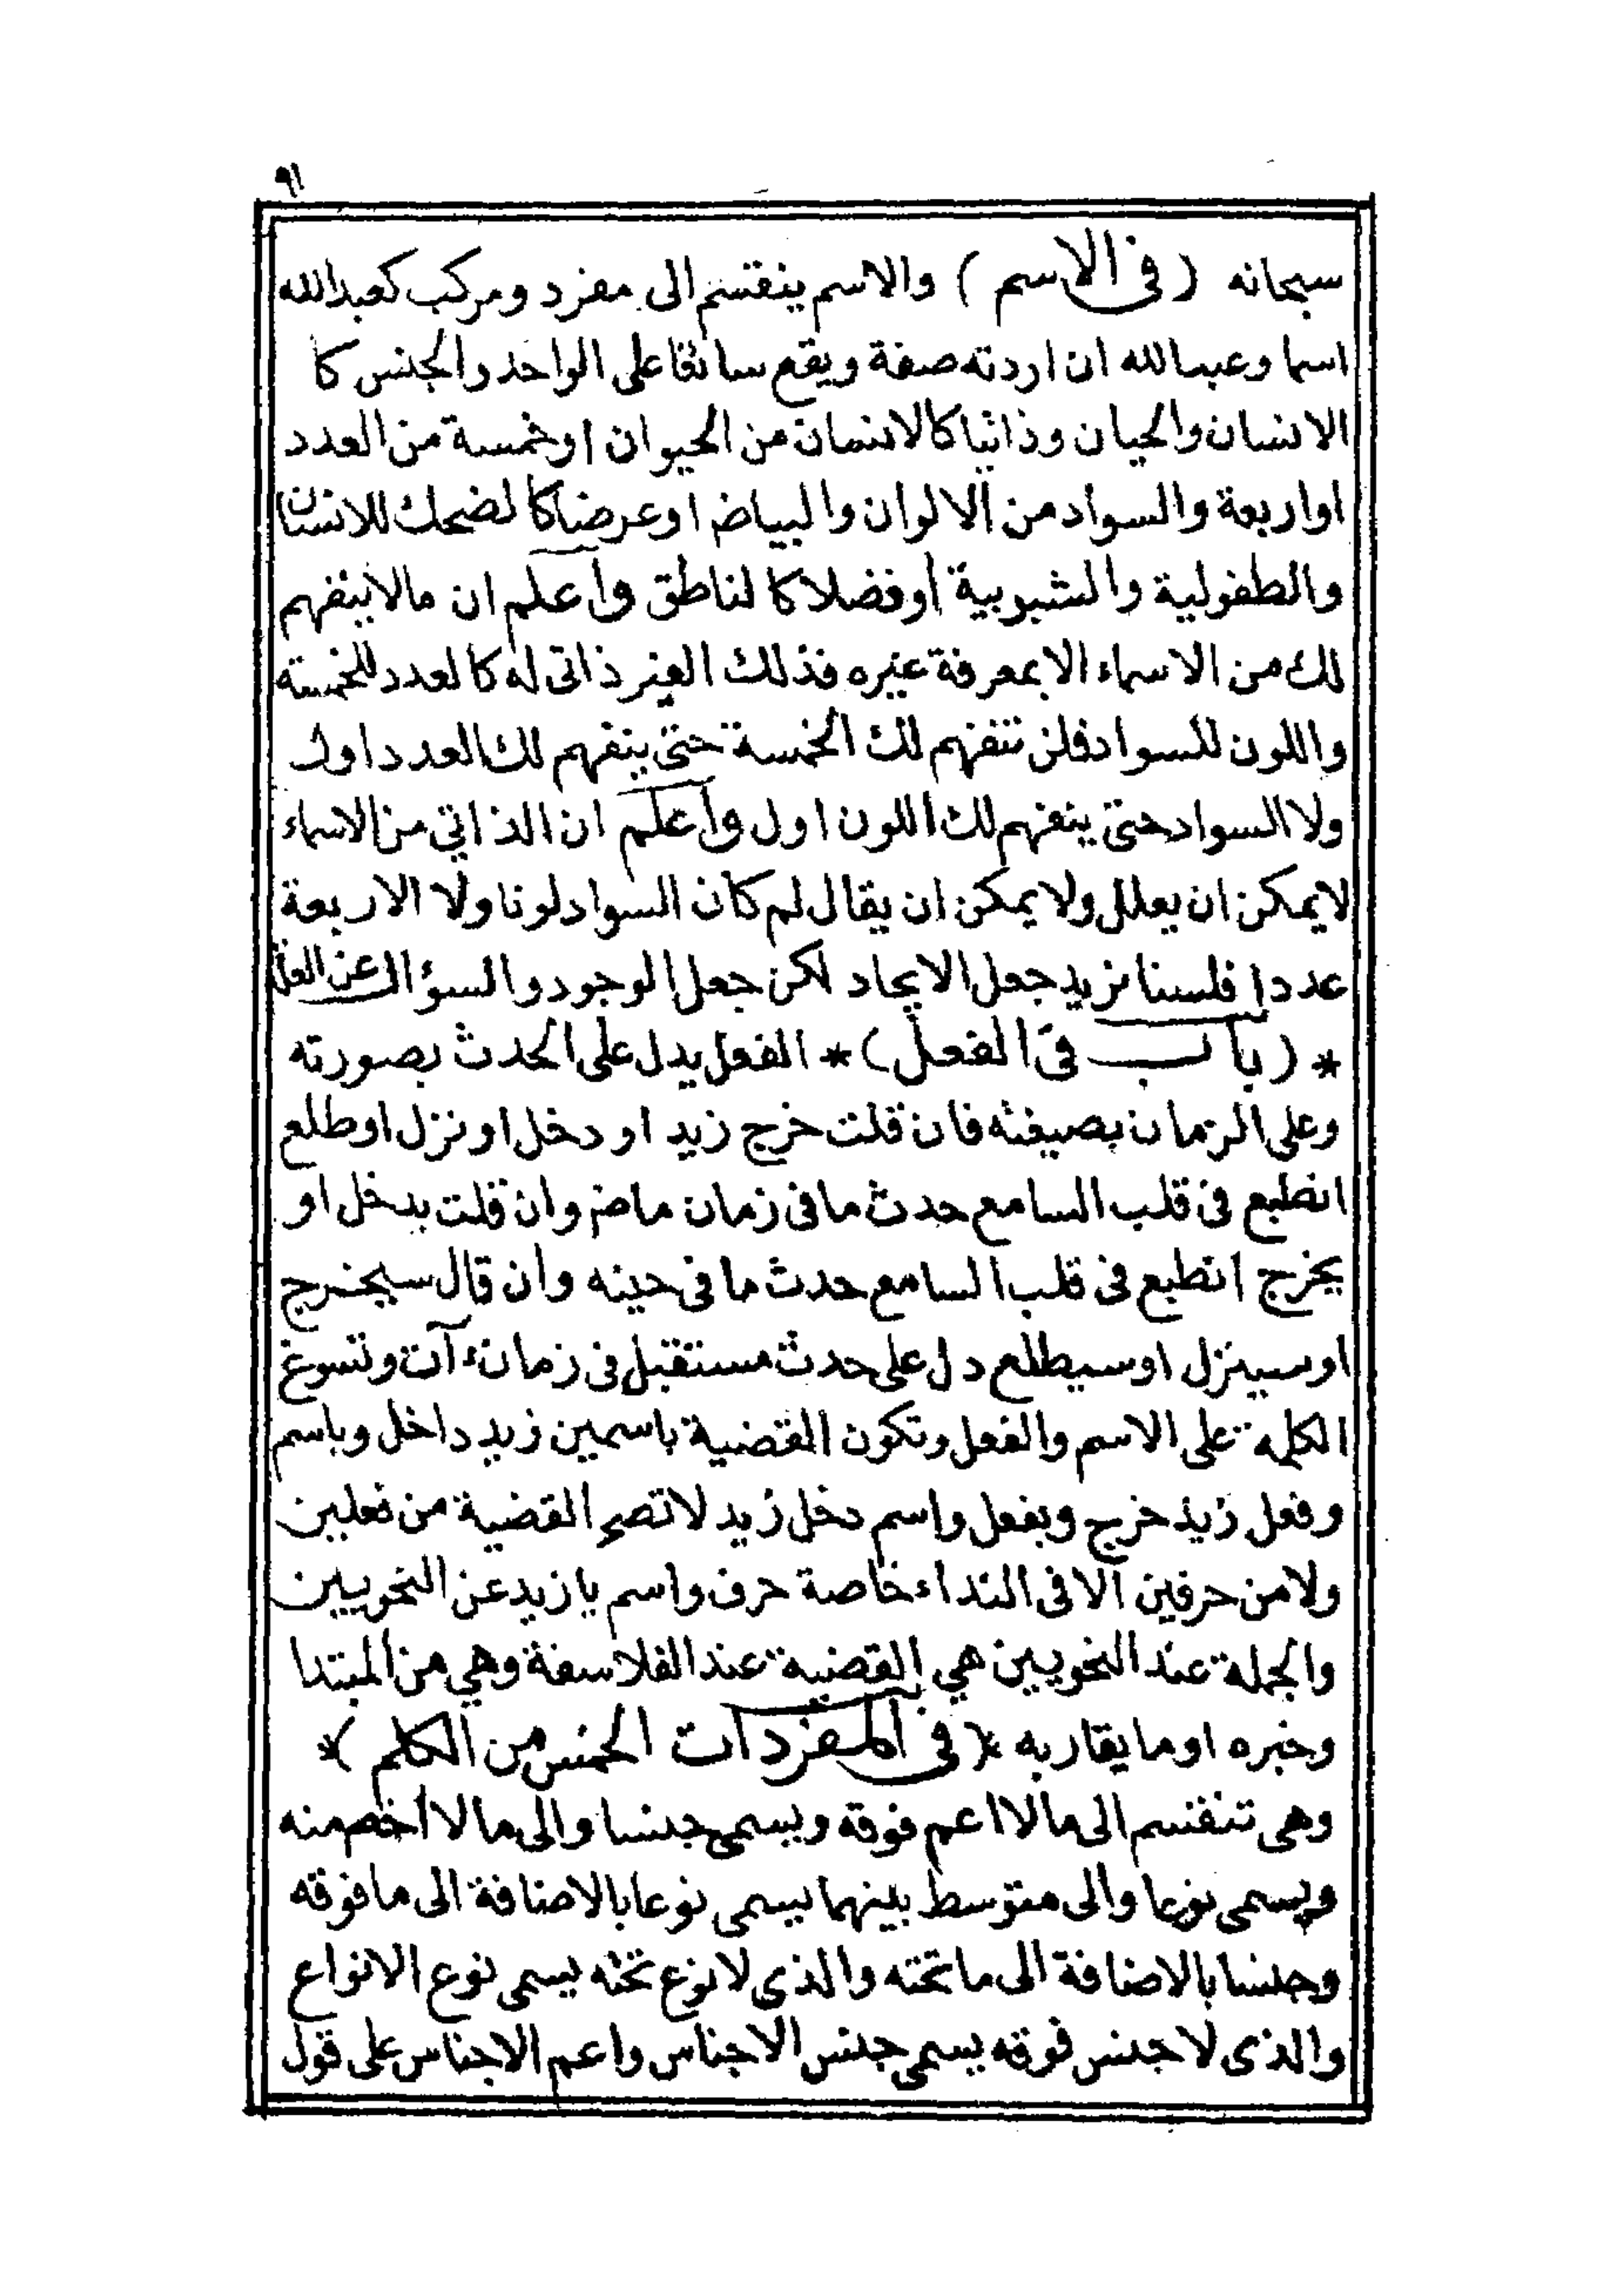 ٩١
سبحانه (فى الاسم) والاسم ينقسم الى مفرد ومركب كعبدالله
اسما وعبدالله ان اردته صفة ويقع سائقا على الواحد والجنس كا
الانسان والحيان وذاتيا كالانسان من الحيوان اوخمسة من العدد
اواربعة والسواد من الالوان والبياض اوعرضا كالضحك للانسان
والطفولية والشبوبية اوفضلا كالناطق واعلم ان مالاينفهم
لك من الاسماء الابمعرفة غيره فذلك الغير ذاتى له كالعدد للخمسة
واللون للسواد فلن تنفهم لك الخمسة حتى ينفهم لك العدد اول
ولا السواد حتى ينفهم لك اللون اول واعلم ان الذاتي من الاسماء
لايمكن ان يعلل ولا يمكن ان يقال لم كان السواد لونا ولا الاربعة
عددا فلسنا نريد جعل الايجاد لكن جعل الوجود والسؤال عن العلة
* (باب فى الفعل) * الفعل يدل على الحدث بصورته
وعلى الزمان بصيغته فان قلت خرج زيد او دخل او نزل اوطلع
انطبع فى قلب السامع حدث ما فى زمان ماض وان قلت يدخل او
يخرج انطبع فى قلب السامع حدث ما فى حينه وان قال سيخرج
اوسينزل اوسيطلع دل على حدث مستقبل فى زمان آت وتسوغ
الكلمة على الاسم والفعل وتكون القضية باسمين زيد داخل وباسم
وفعل زيد خرج وبفعل واسم دخل زيد لاتصح القضية من فعلين
ولا من حرفين الا فى النداء خاصة حرف واسم يازيد عن النحويين
والجملة عند النحويين هي القضية عند الفلاسفة وهي من المبتدا
وخبره اومايقاربه *(فى المفردات الخمس من الكلم)*
وهى تنقسم الى مالااعم فوقه ويسمى جنسا والى مالا اخص منه
ويسمى نوعا والى متوسط بينهما يسمى نوعا بالاضافة الى مافوقه
وجنسا بالاضافة الى ماتحته والذى لانوع تحته يسمى نوع الانواع
والذى لاجنس فوقه يسمى جنس الاجناس واعم الاجناس على قول